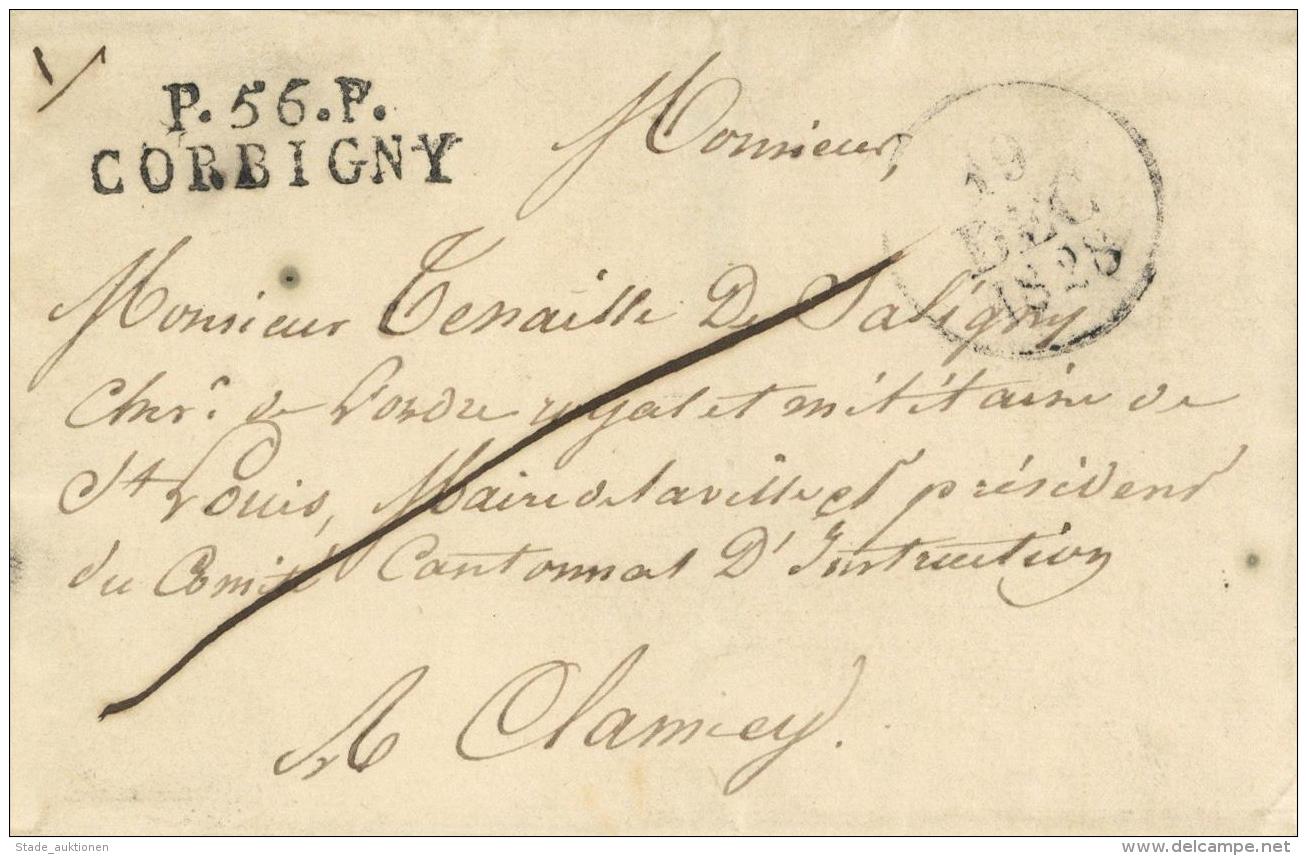 P. 56. P.
CORBIGNY
19
DEC
1828
Monsieur,
Monsieur Tenaille De Saligny
Cher. de L'ordre royal et militaire de
St Louis, Maire de la ville et président
du Comité Cantonnal D'Instruction
A Clamecy.
Stade_auktionen
www.delcampe.net